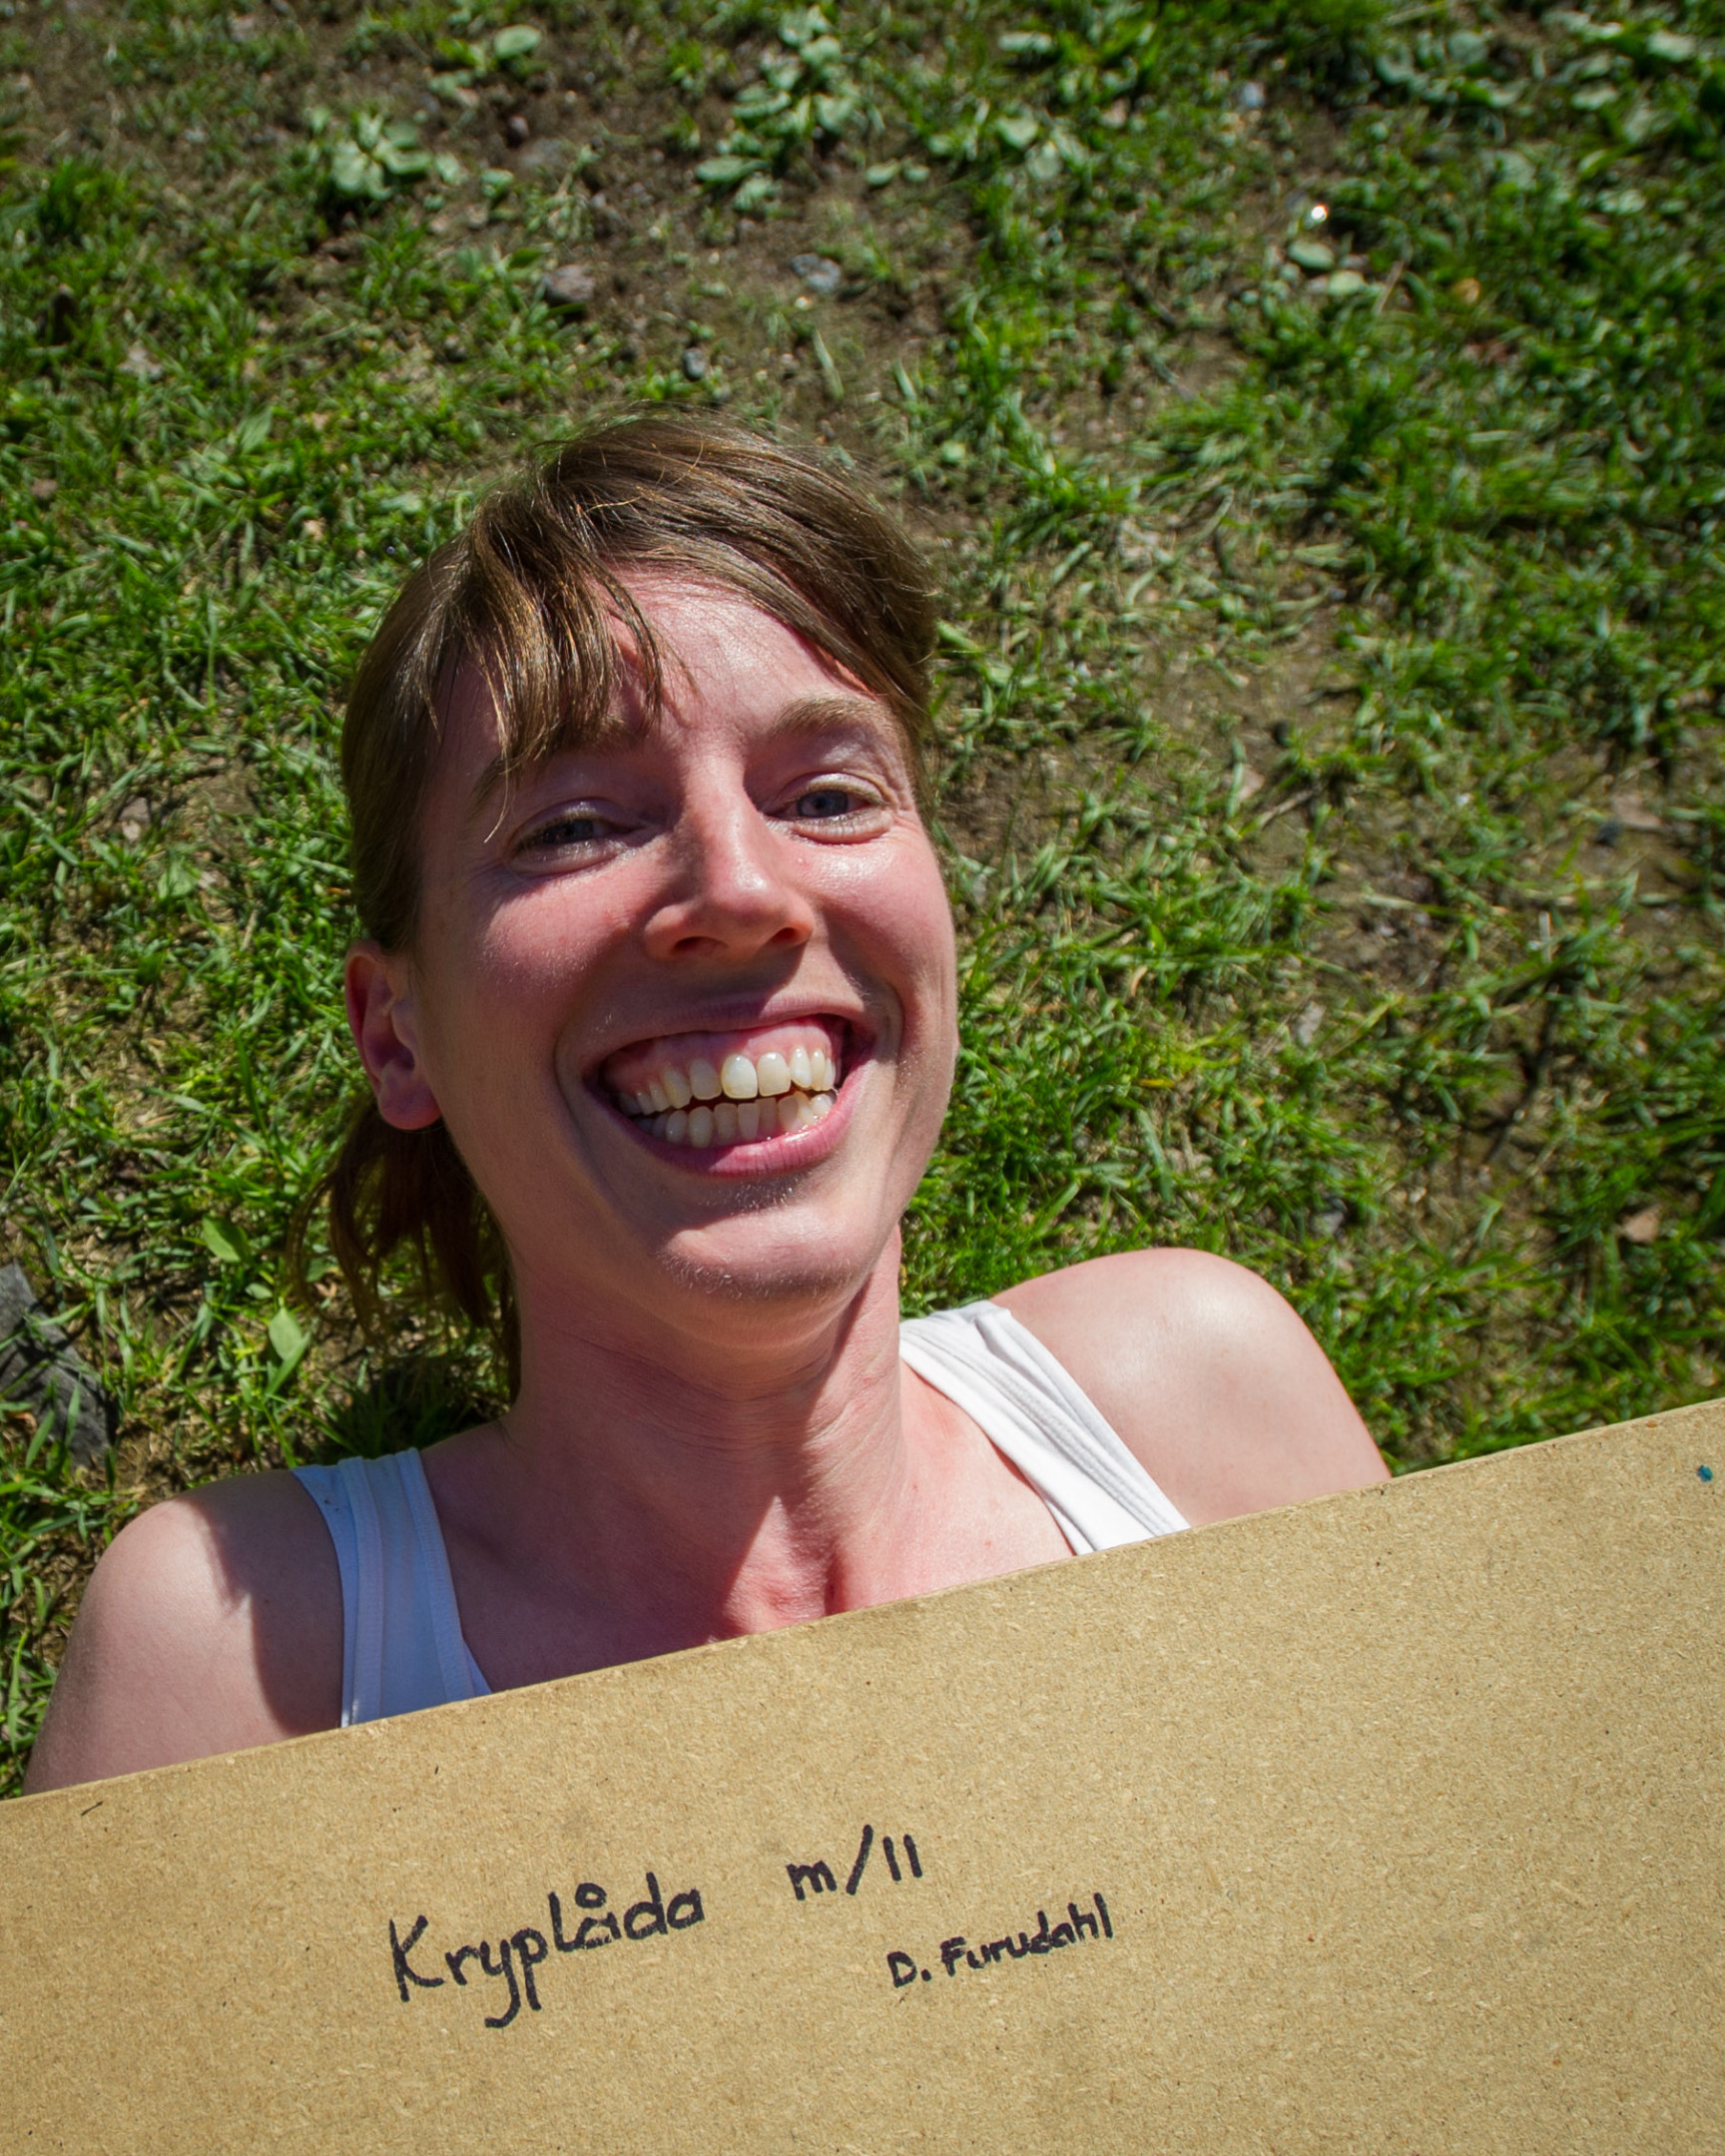 Kryplåda m/11
D. Furudahl